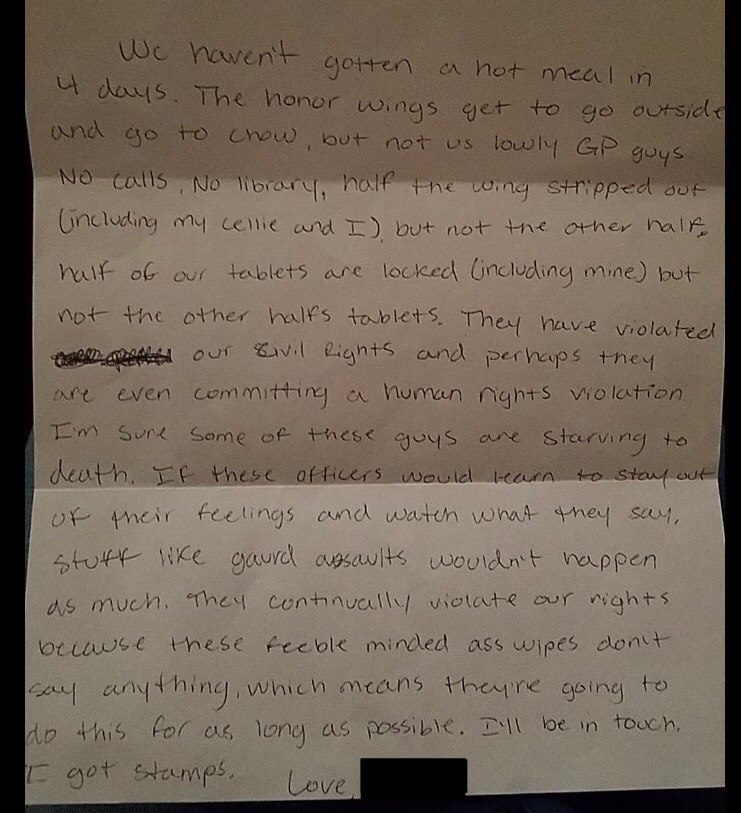 We haven't gotten a hot meal in
4 days. The honor wings get to go outside
and go to chow, but not us lowly GP guys
No calls, No library, half the wing stripped out
(including my cellie and I), but not the other half.
half of our tablets are locked (including mine) but
not the other halfs tablets. They have violated
our Civil Rights and perhaps they
are even committing a human rights violation
I'm sure some of these guys are starving to
death. If these officers would learn to stay out
of their feelings and watch what they say,
stuff like gaurd assaults wouldn't happen
as much. They continually violate our rights
because these feeble minded ass wipes don't
say anything, which means they're going to
do this for as long as possible. I'll be in touch.
I got stamps. Love,